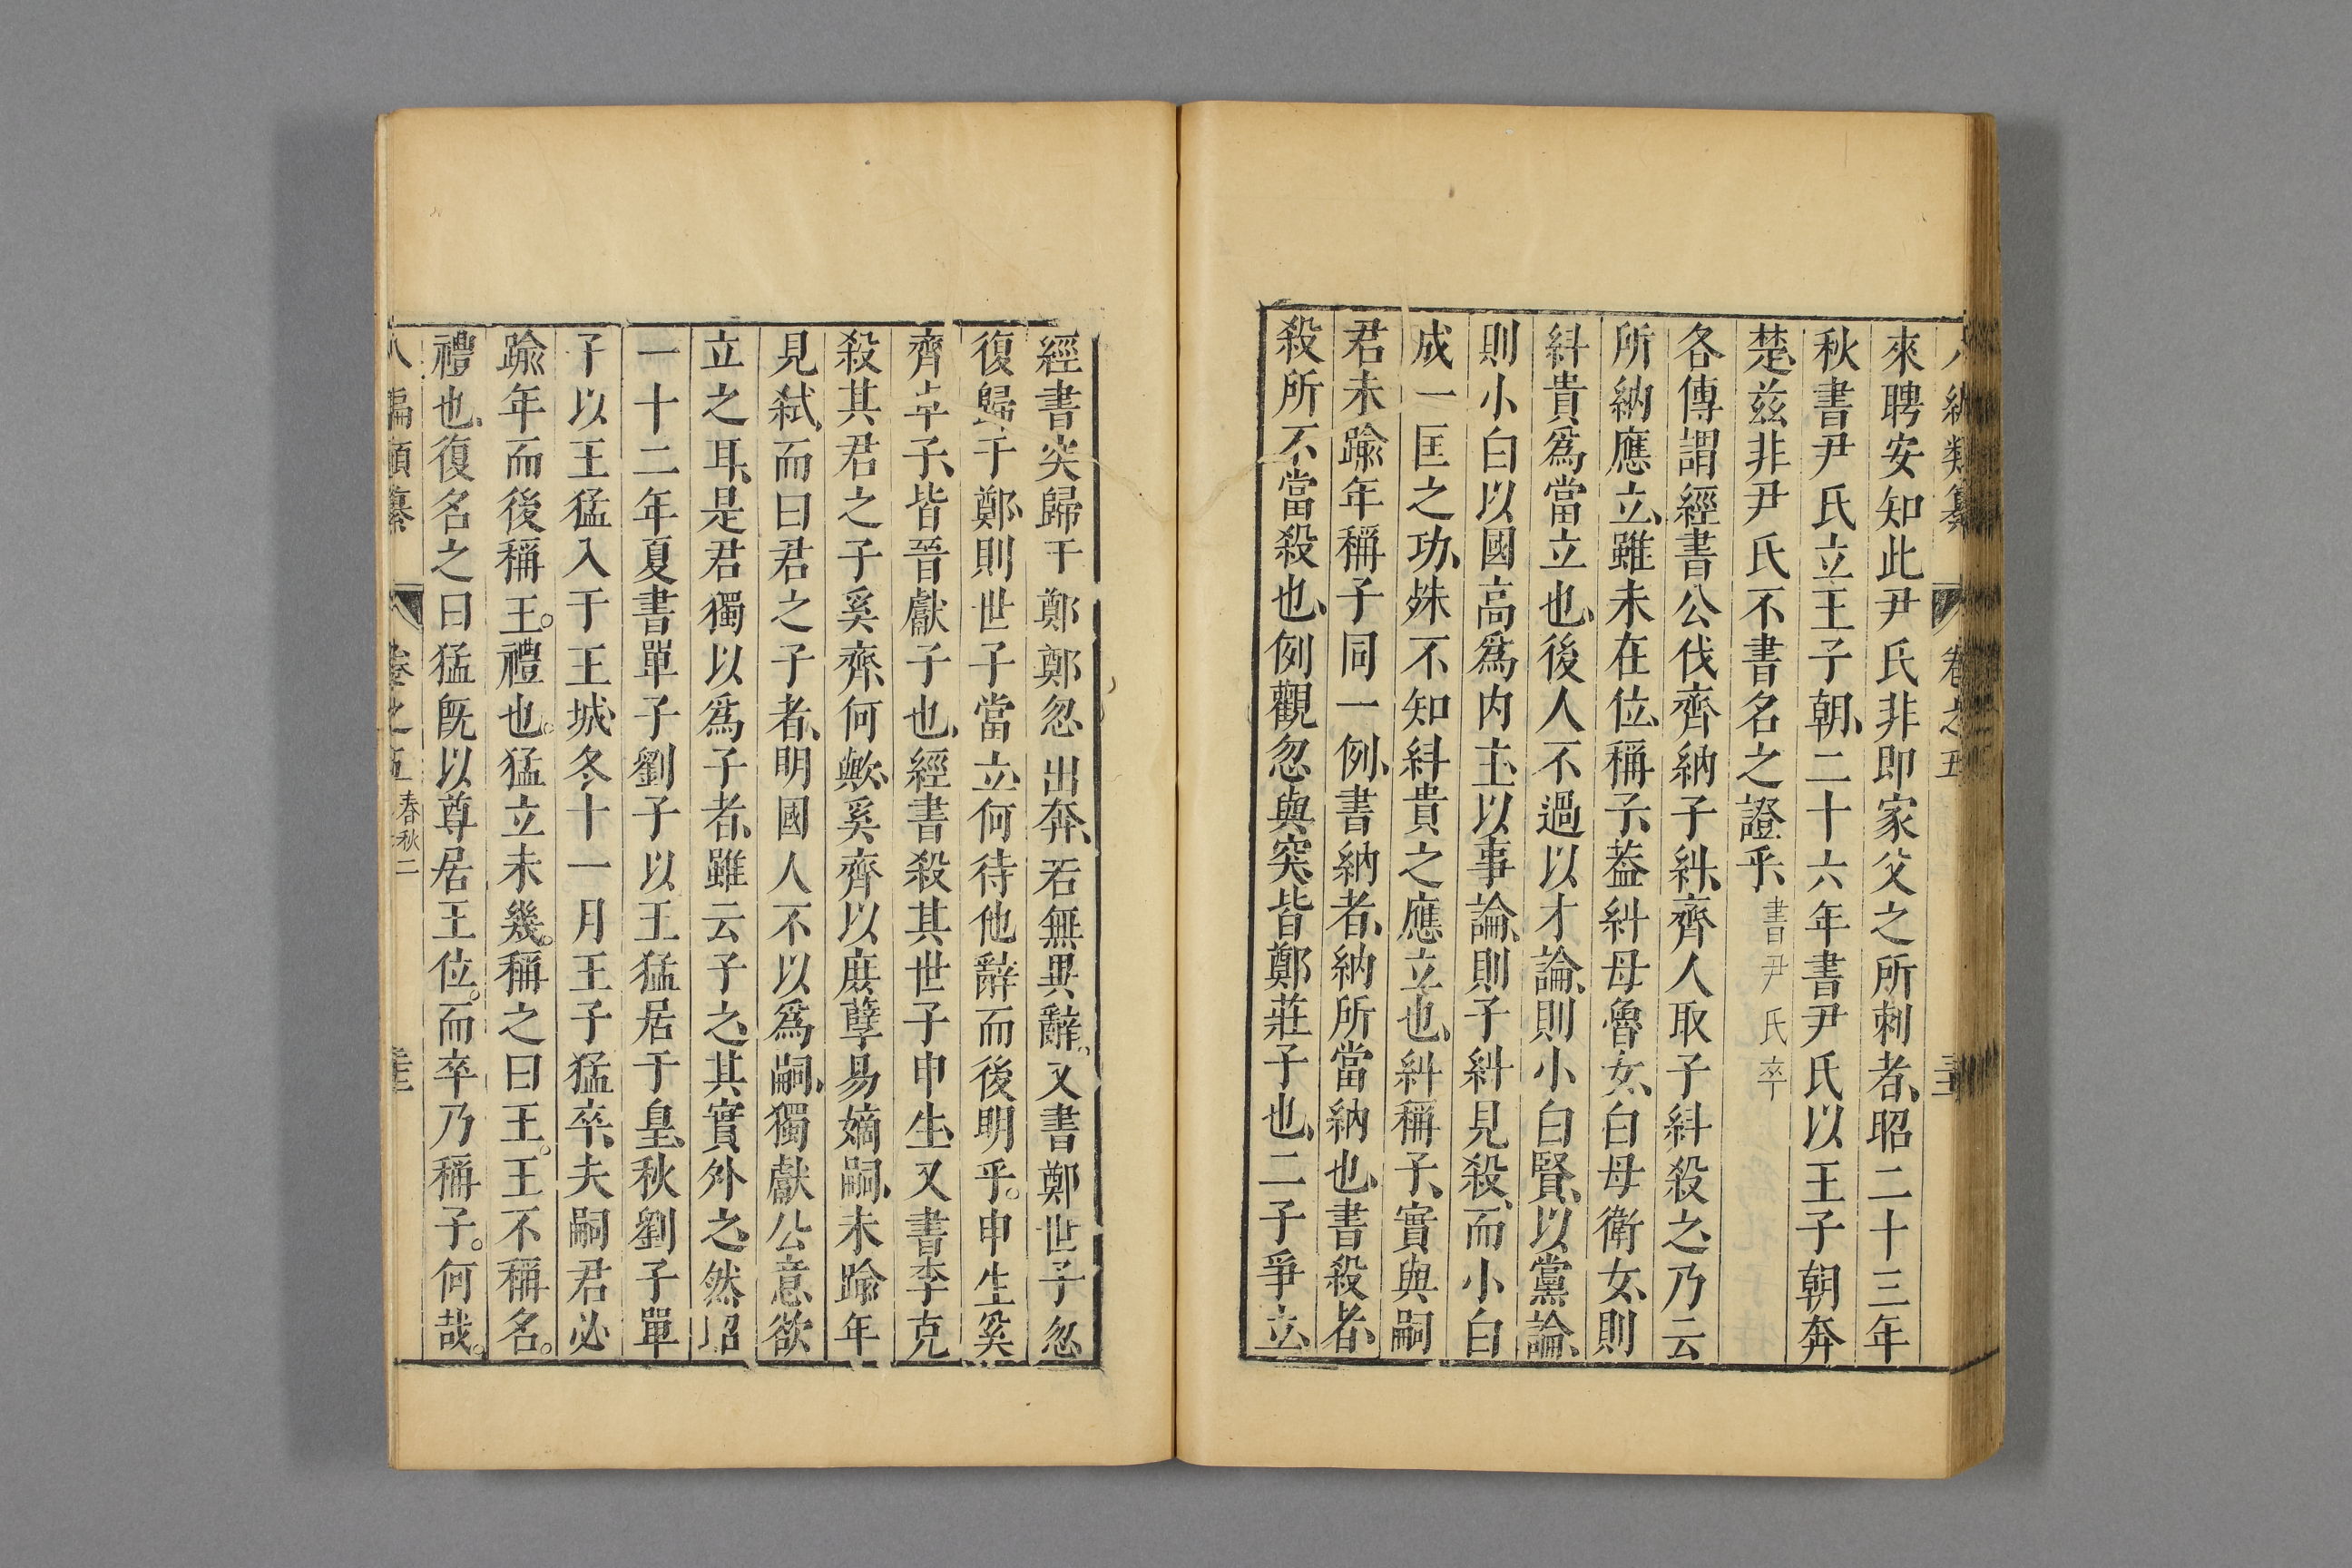 八編類纂 卷之五
來聘安知此尹氏非即家父之所刺者、昭二十三年
秋書尹氏立王子朝、二十六年書尹氏以王子朝奔
楚、兹非尹氏不書名之證乎、書尹氏卒
各傳謂經書公伐齊納子糾、齊人取子糾殺之、乃云
所納應立、雖未在位、稱子、葢糾母魯女、白母衛女、則
糾貴爲當立也、後人不過以才論、則小白賢、以黨論、
則小白以國高爲内主、以事論、則子糾見殺、而小白
成一匡之功、姝不知糾貴之應立也、糾稱子、實與嗣
君未踰年稱子同一例、書納者、納所當納也、書殺者、
殺所不當殺也、例觀忽與突、皆鄭莊子也、二子爭立、
經書突歸于鄭鄭忽出奔、若無異辭、又書鄭世子忽
復歸于鄭、則世子當立、何待他辭而後明乎。申生奚
齊卓子、皆晉獻子也、經書殺其世子申生、又書李克
殺其君之子奚齊、何歟、奚齊以庶孽易嫡嗣、未踰年
見弑、而曰君之子者、明國人不以爲嗣、獨獻公意欲
立之耳、是君獨以爲子者、雖云子之、其實外之、然昭
一十二年夏書單子劉子以王猛居于皇、秋劉子單
子以王猛入于王城、冬十一月王子猛卒、夫嗣君必
踰年而後稱王。禮也。猛立未幾。稱之曰王。王不稱名。
禮也、復名之曰猛既以尊居王位。而卒乃稱子。何哉。
八編類纂 卷之五 春秋二